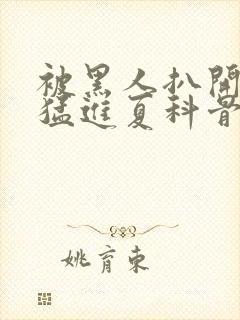 被黑人扒開
猛進夏科骨
姚育東